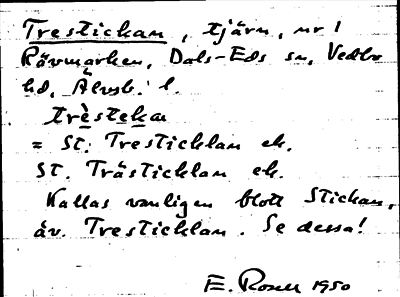 Trestickan, tjärn, nr 1
Rävmarken, Dals-Eds sn, Vedbo
hd, Älvsb. l.
trèstekan
= St. Tresticklan ek.
St. Trästicklan ek.
Kallas vanligen blott Stickan,
äv. Tresticklan. Se dessa!
E. Rosell 1950